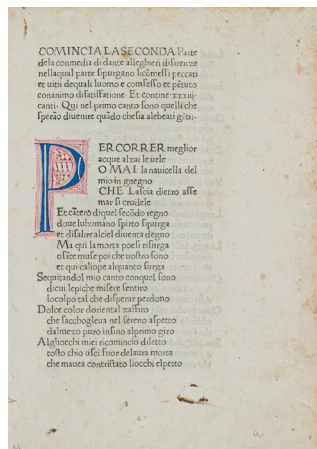 COMINCIA LA SECONDA Parte
dela conmedia di dante alleghieri di firenze
nellaqual parte si purgano licōmessi peccati
et uitii dequali luomo e confesso et pētuto
con animo di satisfatione. Et contine xxxiii·
canti. Qui nel primo canto sono quelli che
sperāo diuenire quādo che sia alebeati gēti:
PER CORRER meglior
acque alzai le uele
O MAI la nauicella del
mio in gnegno
CHE Lascia dietro asse
mar si crudele
Et cātero di quel secōdo regno
doue luhumano spirto si purga
et di salire al ciel diuenta degno
Ma qui la morta poesi risurga
o sāte muse poi che uostro sono
et qui caliope alquanto surga
Sequitando l mio canto con quel sono
di cui le piche misere sentiro
lo colpo tal che disperar perdono
Dolce color doriental zaffiro
che saccoglieua nel sereno aspetto
dal mezo puro insino al primo giro
Algliocchi miei ricomincio diletto
tosto chio usci fuor de laura morta
che mauea contristato liocchi el petto
a